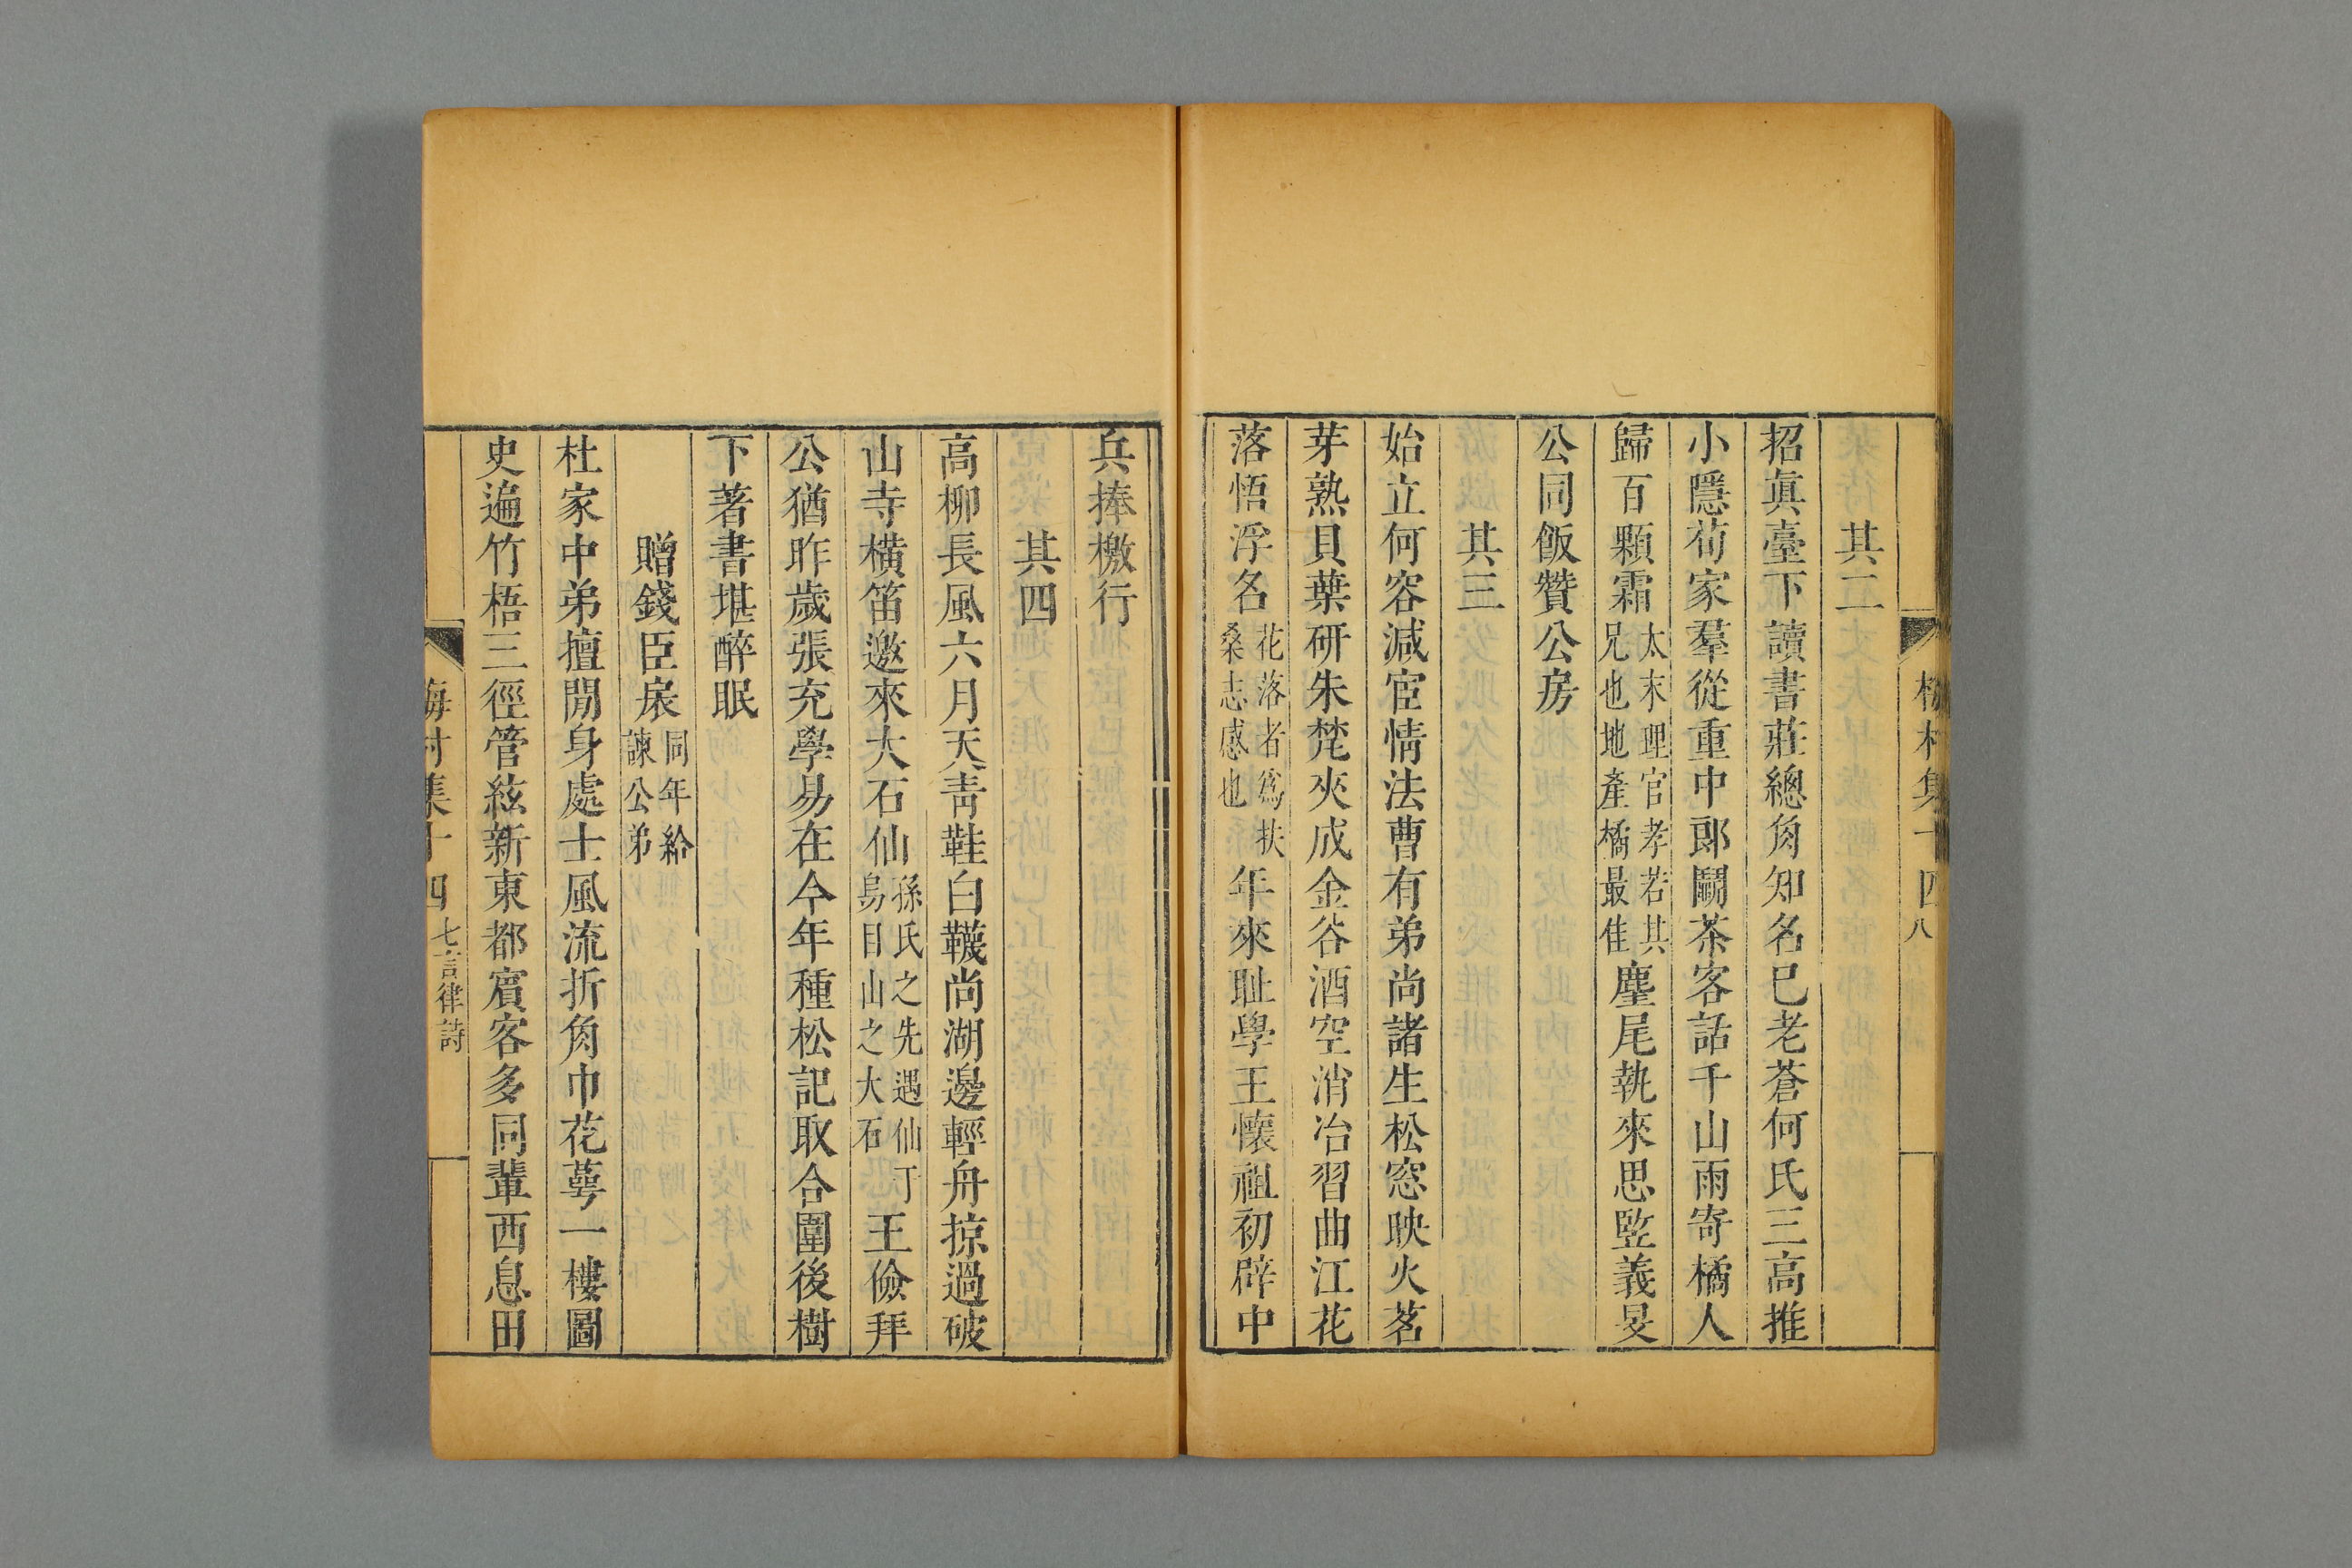 梅村集十四 八
其二
招眞臺下讀書莊總角知名已老蒼何氏三高推
小隱荀家羣從重中郎鬬茶客話千山雨寄橘人
歸百顆霜太末理官孝若其兄也地產橘最佳麈尾執來思監義旻
公同飯贊公房
其三
始立何容減宦情法曹有弟尚諸生松窓映火茗
芽熟貝葉研朱梵夾成金谷酒空消冶習曲江花
落悟浮名花落者爲扶桑志感也年來耻學王懷祖初辟中
兵捧檄行
其四
高柳長風六月天青鞋白韈尚湖邊輕舟掠過破
山寺橫笛邀來大石仙孫氏之先遇仙丁易目山之大石王儉拜
公猶昨歲張充學易在今年種松記取合圍後樹
下著書堪醉眠
贈錢臣扆同年給諫公弟
杜家中弟擅閒身處士風流折角巾花萼一樓圖
史遍竹梧三徑管絃新東都賓客多同輩西息田
梅村集十四 七言律詩